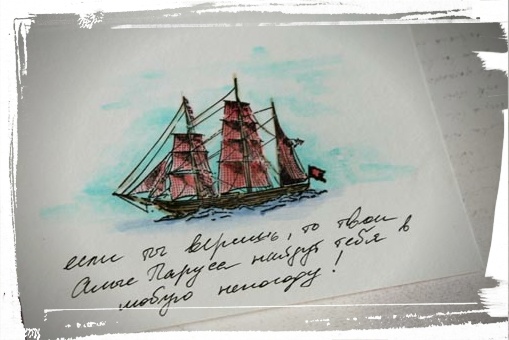 если ты веришь, то твои
Алые Паруса найдут тебя в
любую непогоду!